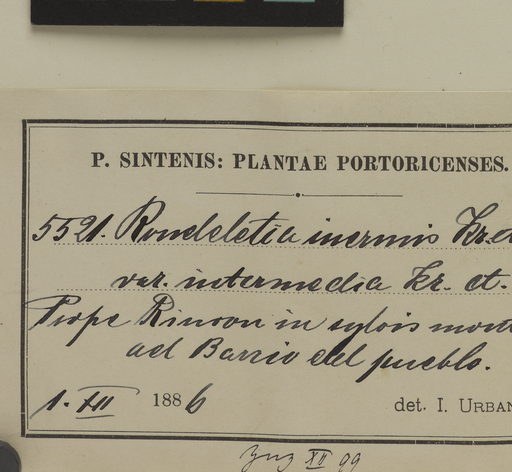 P. SINTENIS: PLANTAE PORTORICENSES.
5521. Rondeletia inermis Kr. et
var. intermedia Kr. et.
Prope Rincon in sylvis mont
ad Barrio del pueblo.
1. XII 1886 det. I. URBAN
XII 99